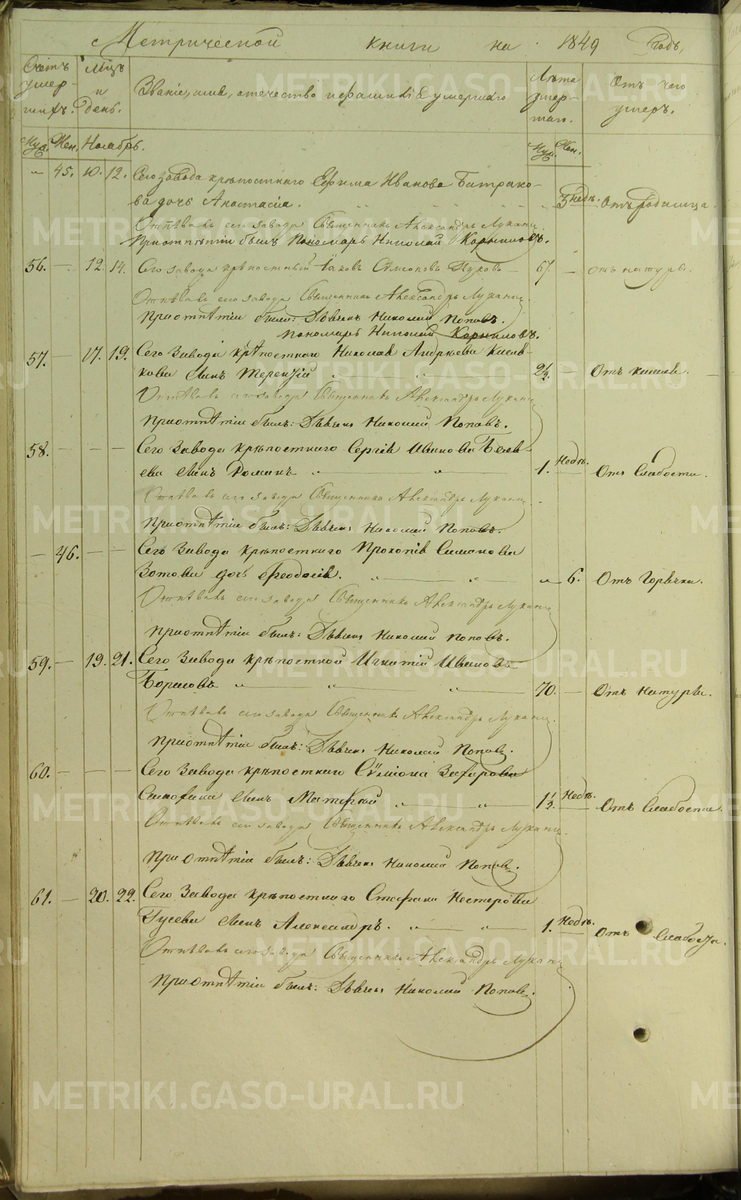 Метрической книги на 1849 Годъ.
Счетъ умершихъ. Мцъ и день. Званіе, имя, отечество и фамилія умершаго Лѣта умершаго. Отъ чего умеръ.
Муж. Жен. Ноябрь. Муж. Жен.
„ 45. 10. 12. Сего завода крѣпостнаго Ефима Иванова Батрако-
ва дочь Анастасія. 5 недѣ. Отъ родимца.
Отпѣвалъ сего завода Священникъ Александръ Луканин
При отпѣтіи былъ Пономарь Николай Корниловъ.
56. — 12. 14. Сего завода крѣпостный Іаковъ Симоновъ 67. — отъ натуры.
Отпѣвалъ сего завода Священникъ Александръ Луканин
При отпѣтіи были: Дьячекъ Николай Поповъ.
Пономарь Николай Корниловъ.
57. — 17. 19. Сего Завода крѣпостнаго Николая
сынъ Терентій „ „ — Отъ кашля.
Отпѣвалъ сего завода Священникъ Александръ Луканин
При отпѣтіи былъ: Дьячекъ Николай Поповъ.
58. — — — Сего Завода крѣпостнаго Сергія Иванова Беля-
ева сынъ Романъ „ „ 1. Недѣ. Отъ Слабости.
Отпѣвалъ сего завода Священникъ Александръ Луканин
При отпѣтіи былъ: Дьячекъ Николай Поповъ.
— 46. — — Сего Завода крѣпостнаго Прокопія Симонова
Зотова дочь Ѳеодосія. „ „ „ 6. Отъ Горячки.
Отпѣвалъ сего завода Священникъ Александръ Луканин
При отпѣтіи былъ: Дьячекъ Николай Поповъ.
59. — 19. 21. Сего Завода крѣпостной Игнатій Ивановъ
Борисовъ „ „ 70. — Отъ Натуры.
Отпѣвалъ сего завода Священникъ Александръ Луканин
При отпѣтіи былъ: Дьячекъ Николай Поповъ.
60. — — — Сего Завода крѣпостнаго Сѵмеона Захарова
сынъ „ „ 1½ Недѣ. Отъ Слабости.
Отпѣвалъ сего завода Священникъ Александръ Луканин
При отпѣтіи былъ: Дьячекъ Николай Поповъ.
61. — 20. 22. Сего Завода крѣпостнаго Стефана Нестерова
Гусева сынъ Александръ. „ „ 1. Недѣ. Отъ Слабости.
Отпѣвалъ сего завода Священникъ Александръ Луканин
При отпѣтіи былъ: Дьячекъ Николай Поповъ.
METRIKI.GASO-URAL.RU